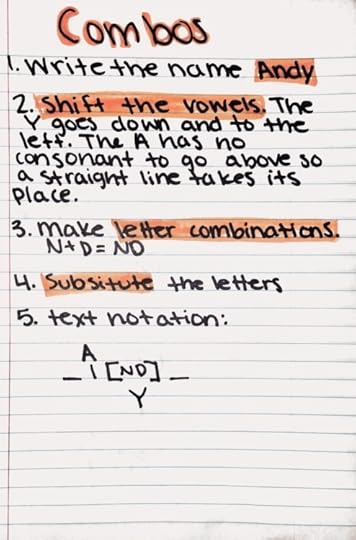 Combos
1. Write the name Andy
2. Shift the vowels. The
Y goes down and to the
left. The A has no
consonant to go above so
a straight line takes its
place.
3. make letter combinations.
N+D=ND
4. Subsitute the letters
5. text notation:
A
_ I [ND] _
Y